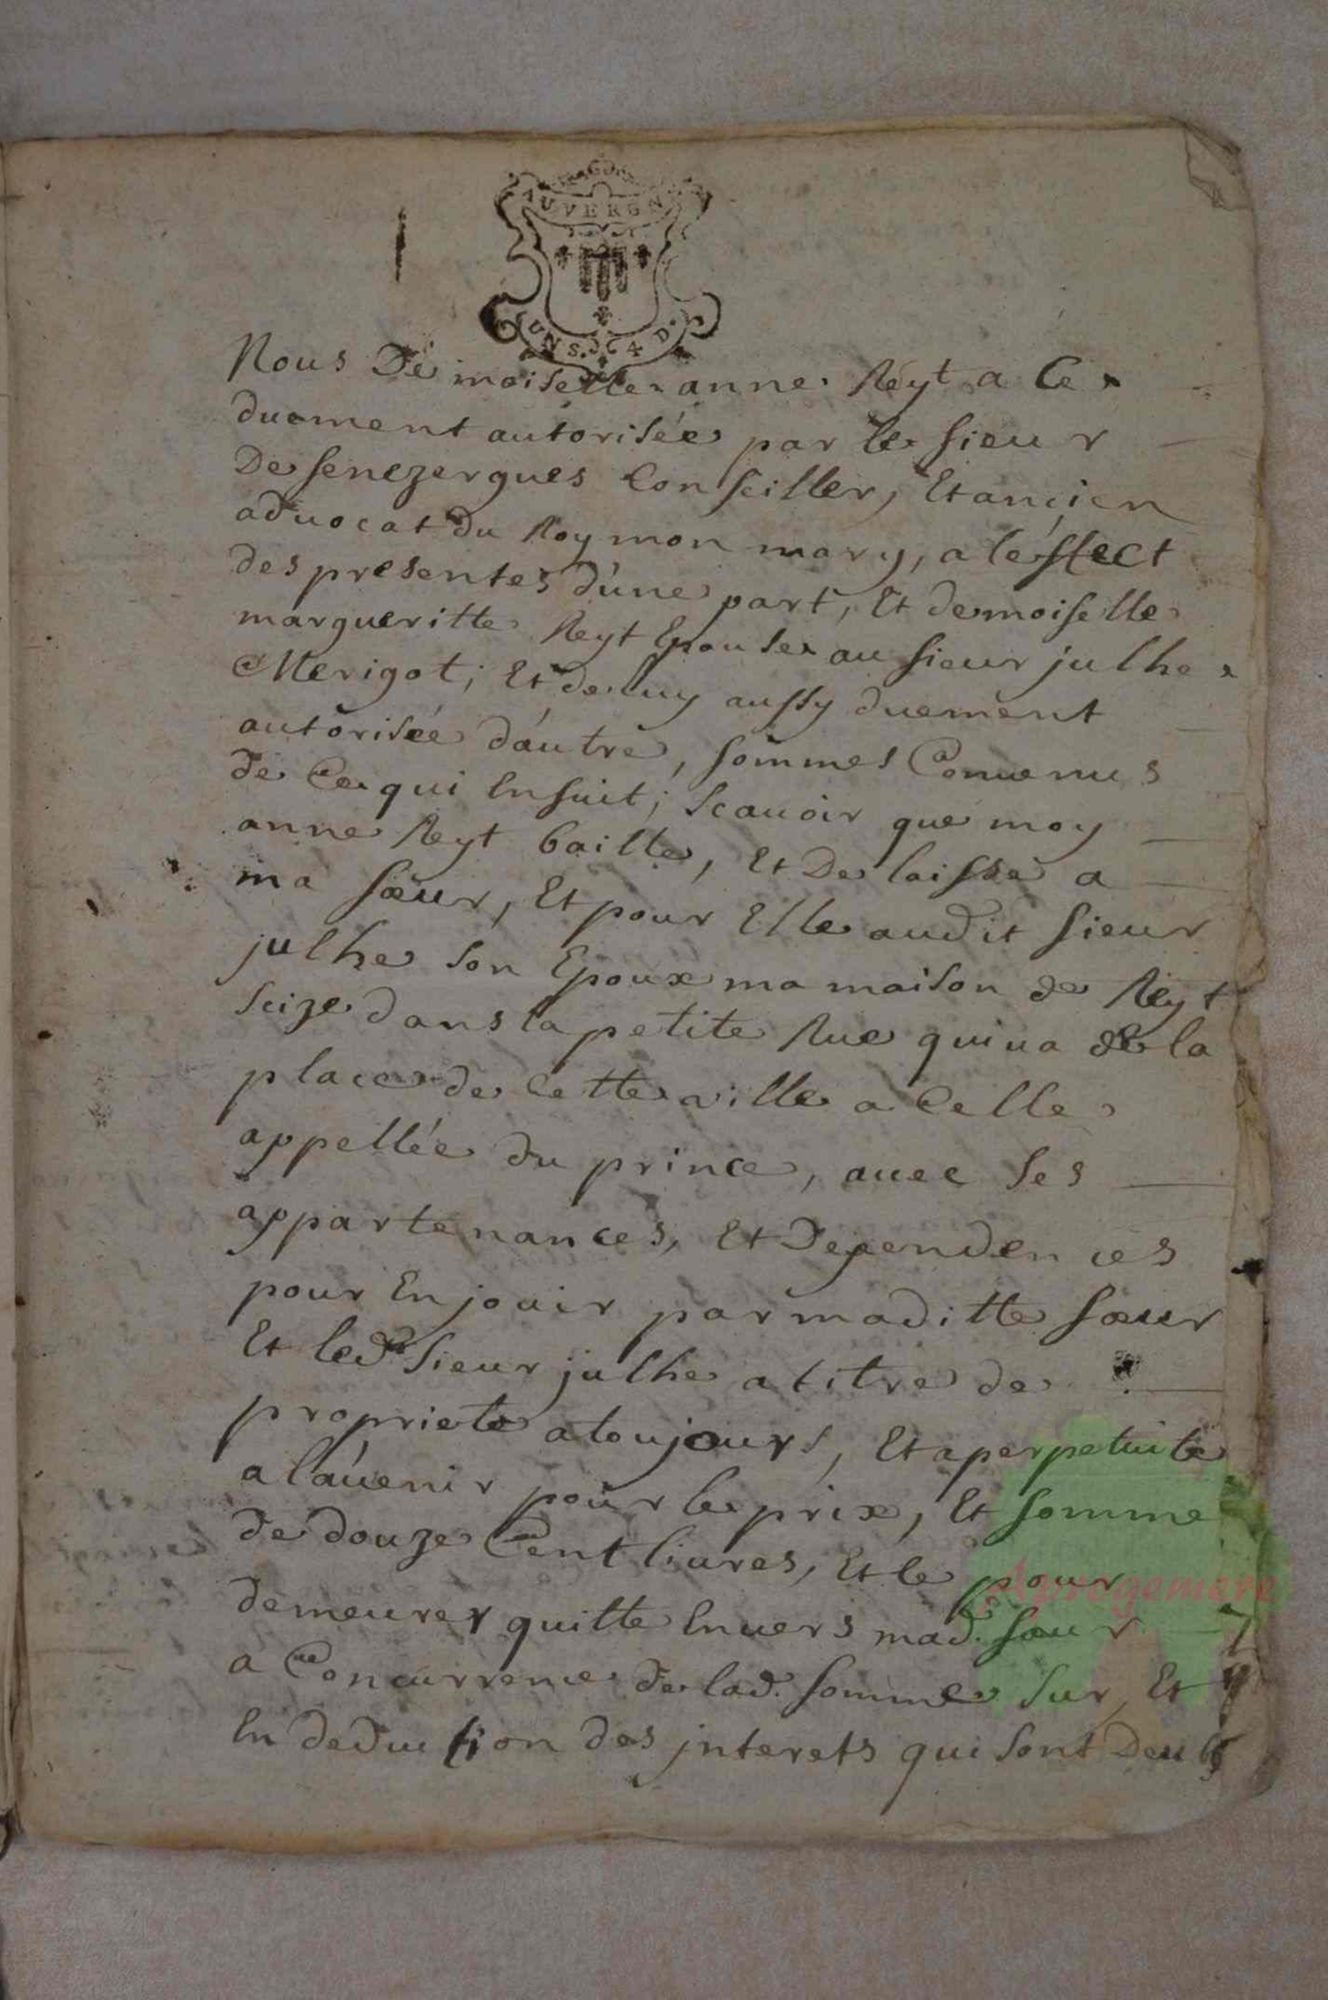 AUVERGN
UN S. 4 D.
Nous Demoiselle anne Reyt a Ce
duement autorisée par le sieur
De senezergues Conseiller, Et ancien
aduocat du Roy mon mary, a léffect
des presentes d'une part, Et demoiselle
margueritte Reyt Epouse au sieur julhe
Merigot; Et de luy aussy duement
autorisée d'autre, sommes Conuenus
de Ce qui Ensuit; Scauoir que moy
anne Reyt baille, Et De laisse a
ma sœur, Et pour Elle audit sieur
julhe son Epoux ma maison de Reyt
seize dans la petite Rue qui ua de la
place de Cette ville a Celle
appellée du prince, auec ses
appartenances, Et Dependences
pour En jouir par maditte sœur
Et led. sieur julhe a titre de
proprieté a toujours, Et a perpetuité
a l'auenir pour le prix, Et somme
de douze Cent liures, Et le pour
demeurer quitte Enuers mad. sœur
a Concurrence de lad. somme sur, Et
En deduction des jnterets qui sont Deubs
Auvrogemere